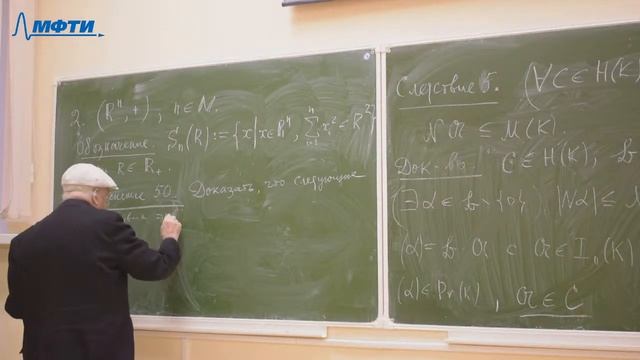 МФТИ
2. (ℝⁿ, +), n ∈ ℕ.
Обозначение. Sₙ(R) := {x | x ∈ ℝⁿ, ∑ᵢ₌₁ⁿ xᵢ² ≤ R²}
R ∈ ℝ₊.
50. Доказать, что следующие
Следствие 5. (∀C ∈ H(K)
N 𝔞 ≤ M(K).
Док-во. C ∈ H(K), 𝔟
(∃α ∈ 𝔟 \ {0}) |Nα| ≤ M
(α) = 𝔟 𝔞 с 𝔞 ∈ Iₙ(K)
(α) ∈ Pr(K), 𝔞 ∈ C